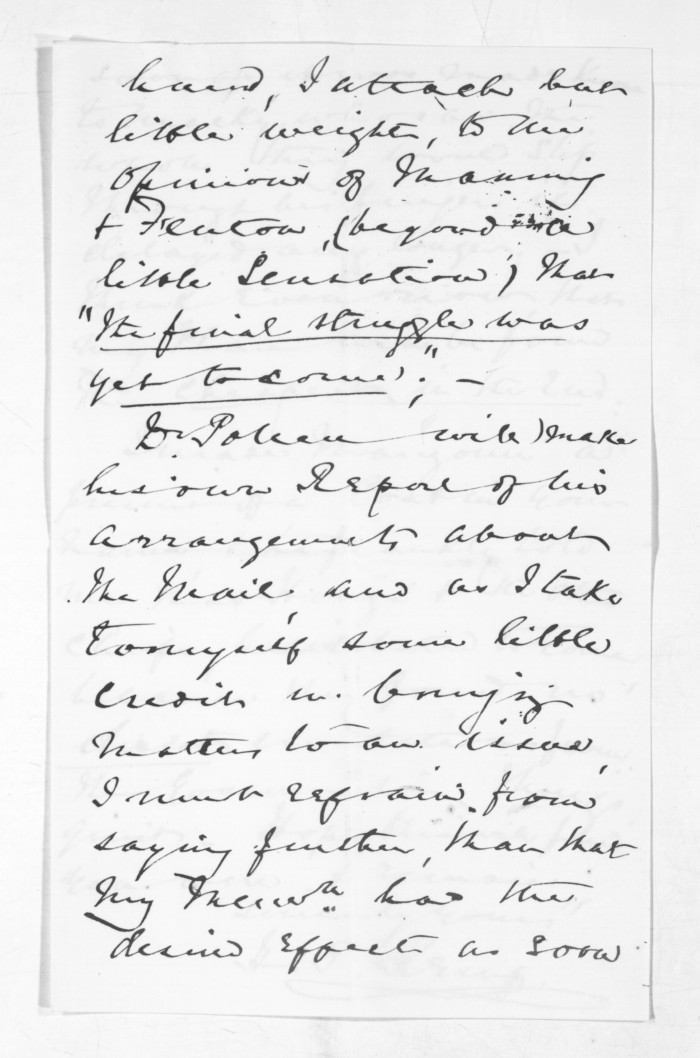 hand, I attach but
little weight, to the
opinions of Manning
& Fenton, (beyond a
little Sensation) that
"the final struggle was
yet to come"; —
Dr. Pollen will make
his own Report of his
arrangements about
the Mail, and as I take
to myself some little
credit in bringing
matters to an issue,
I must refrain from
saying further, than that
My Memdm had the
desired effect as soon